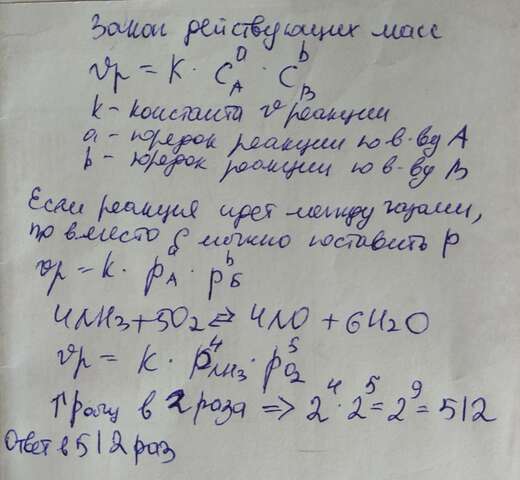 Закон действующих масс
υр = K · C_A^a · C_B^b
K - константа υ реакции
a - порядок реакции по в-ву A
b - порядок реакции по в-ву B
Если реакция идет между газами,
то вместо C можно поставить p
υр = K · p_A^a · p_Б^b
4NH3 + 5O2 ⇄ 4NO + 6H2O
υр = K · p_NH3^4 · p_O2^5
↑ Pобщ в 2 раза => 2^4 · 2^5 = 2^9 = 512
Ответ в 512 раз